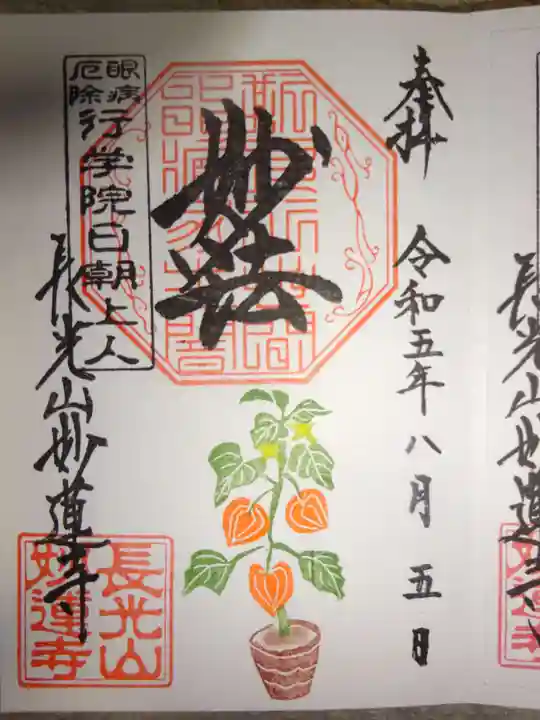 奉拝
令和五年八月五日
妙法
眼病
厄除
行学院日朝上人
長光山妙蓮寺
長光山
妙蓮寺
長光山妙蓮寺
妙蓮寺